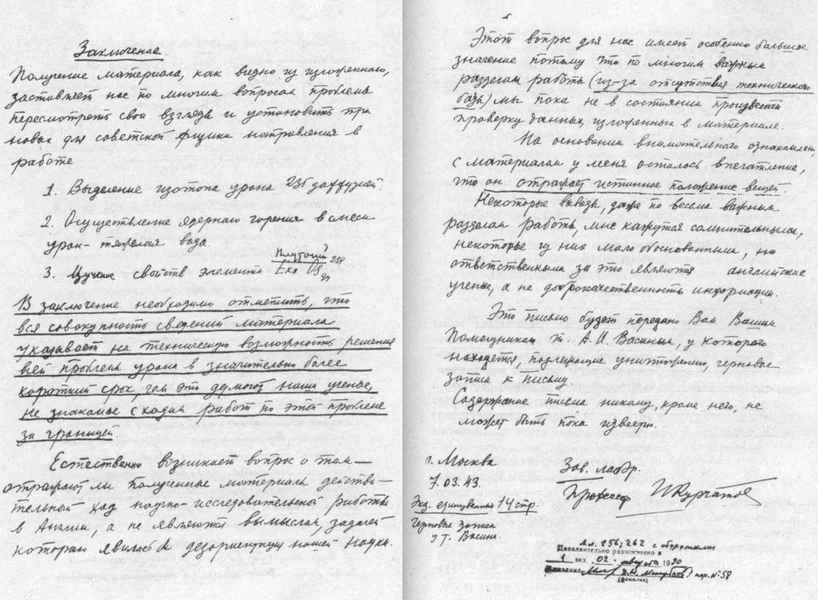 Заключение
Получение материала, как видно из изложенного,
заставляет нас по многим вопросам проблемы
пересмотреть свои взгляды и установить три
новых для советской физики направления в
работе
1. Выделение изотопа урана 235 диффузией.
2. Осуществление ядерного горения в смеси
уран-тяжелая вода.
3. Изучение свойств элемента Eka Os
В заключение необходимо отметить, что
вся совокупность сведений материала
указывает на техническую возможность решения
всей проблемы урана в значительно более
короткий срок, чем это думают наши ученые,
не знакомые с ходом работ по этой проблеме
за границей
Естественно возникает вопрос о том—
отражают ли полученные материалы действи-
тельный ход научно-исследовательской работы
в Англии, а не являются вымыслом, задачей
которого явилась бы дезориентация нашей науки.
Этот вопрос для нас имеет особенно большое
значение потому что по многим важным
разделам работы (из-за отсутствия технической
базы) мы пока не в состоянии произвести
проверку данных, изложенных в материале.
На основании внимательного ознакомления
с материалом у меня осталось впечатление,
что он отражает истинное положение вещей.
Некоторые выводы, даже по весьма важным
разделам работы, мне кажутся сомнительными,
некоторые из них мало обоснованными, но
ответственными за это являются английские
ученые, а не доброкачественность информации.
Это письмо будет передано Вам Вашим
Помощником т. А. И. Васиным, у которого
находятся, подлежащие уничтожению, черновые
записи к письму
Содержание письма никому, кроме него, не
может быть пока известно.
г. Москва
7.03.43.
Экз. единственный 14 стр.
Черновые записи
у т. Васина.
Зав. лабор.
Профессор И Курчатов
1 экз. 02 августа 1990